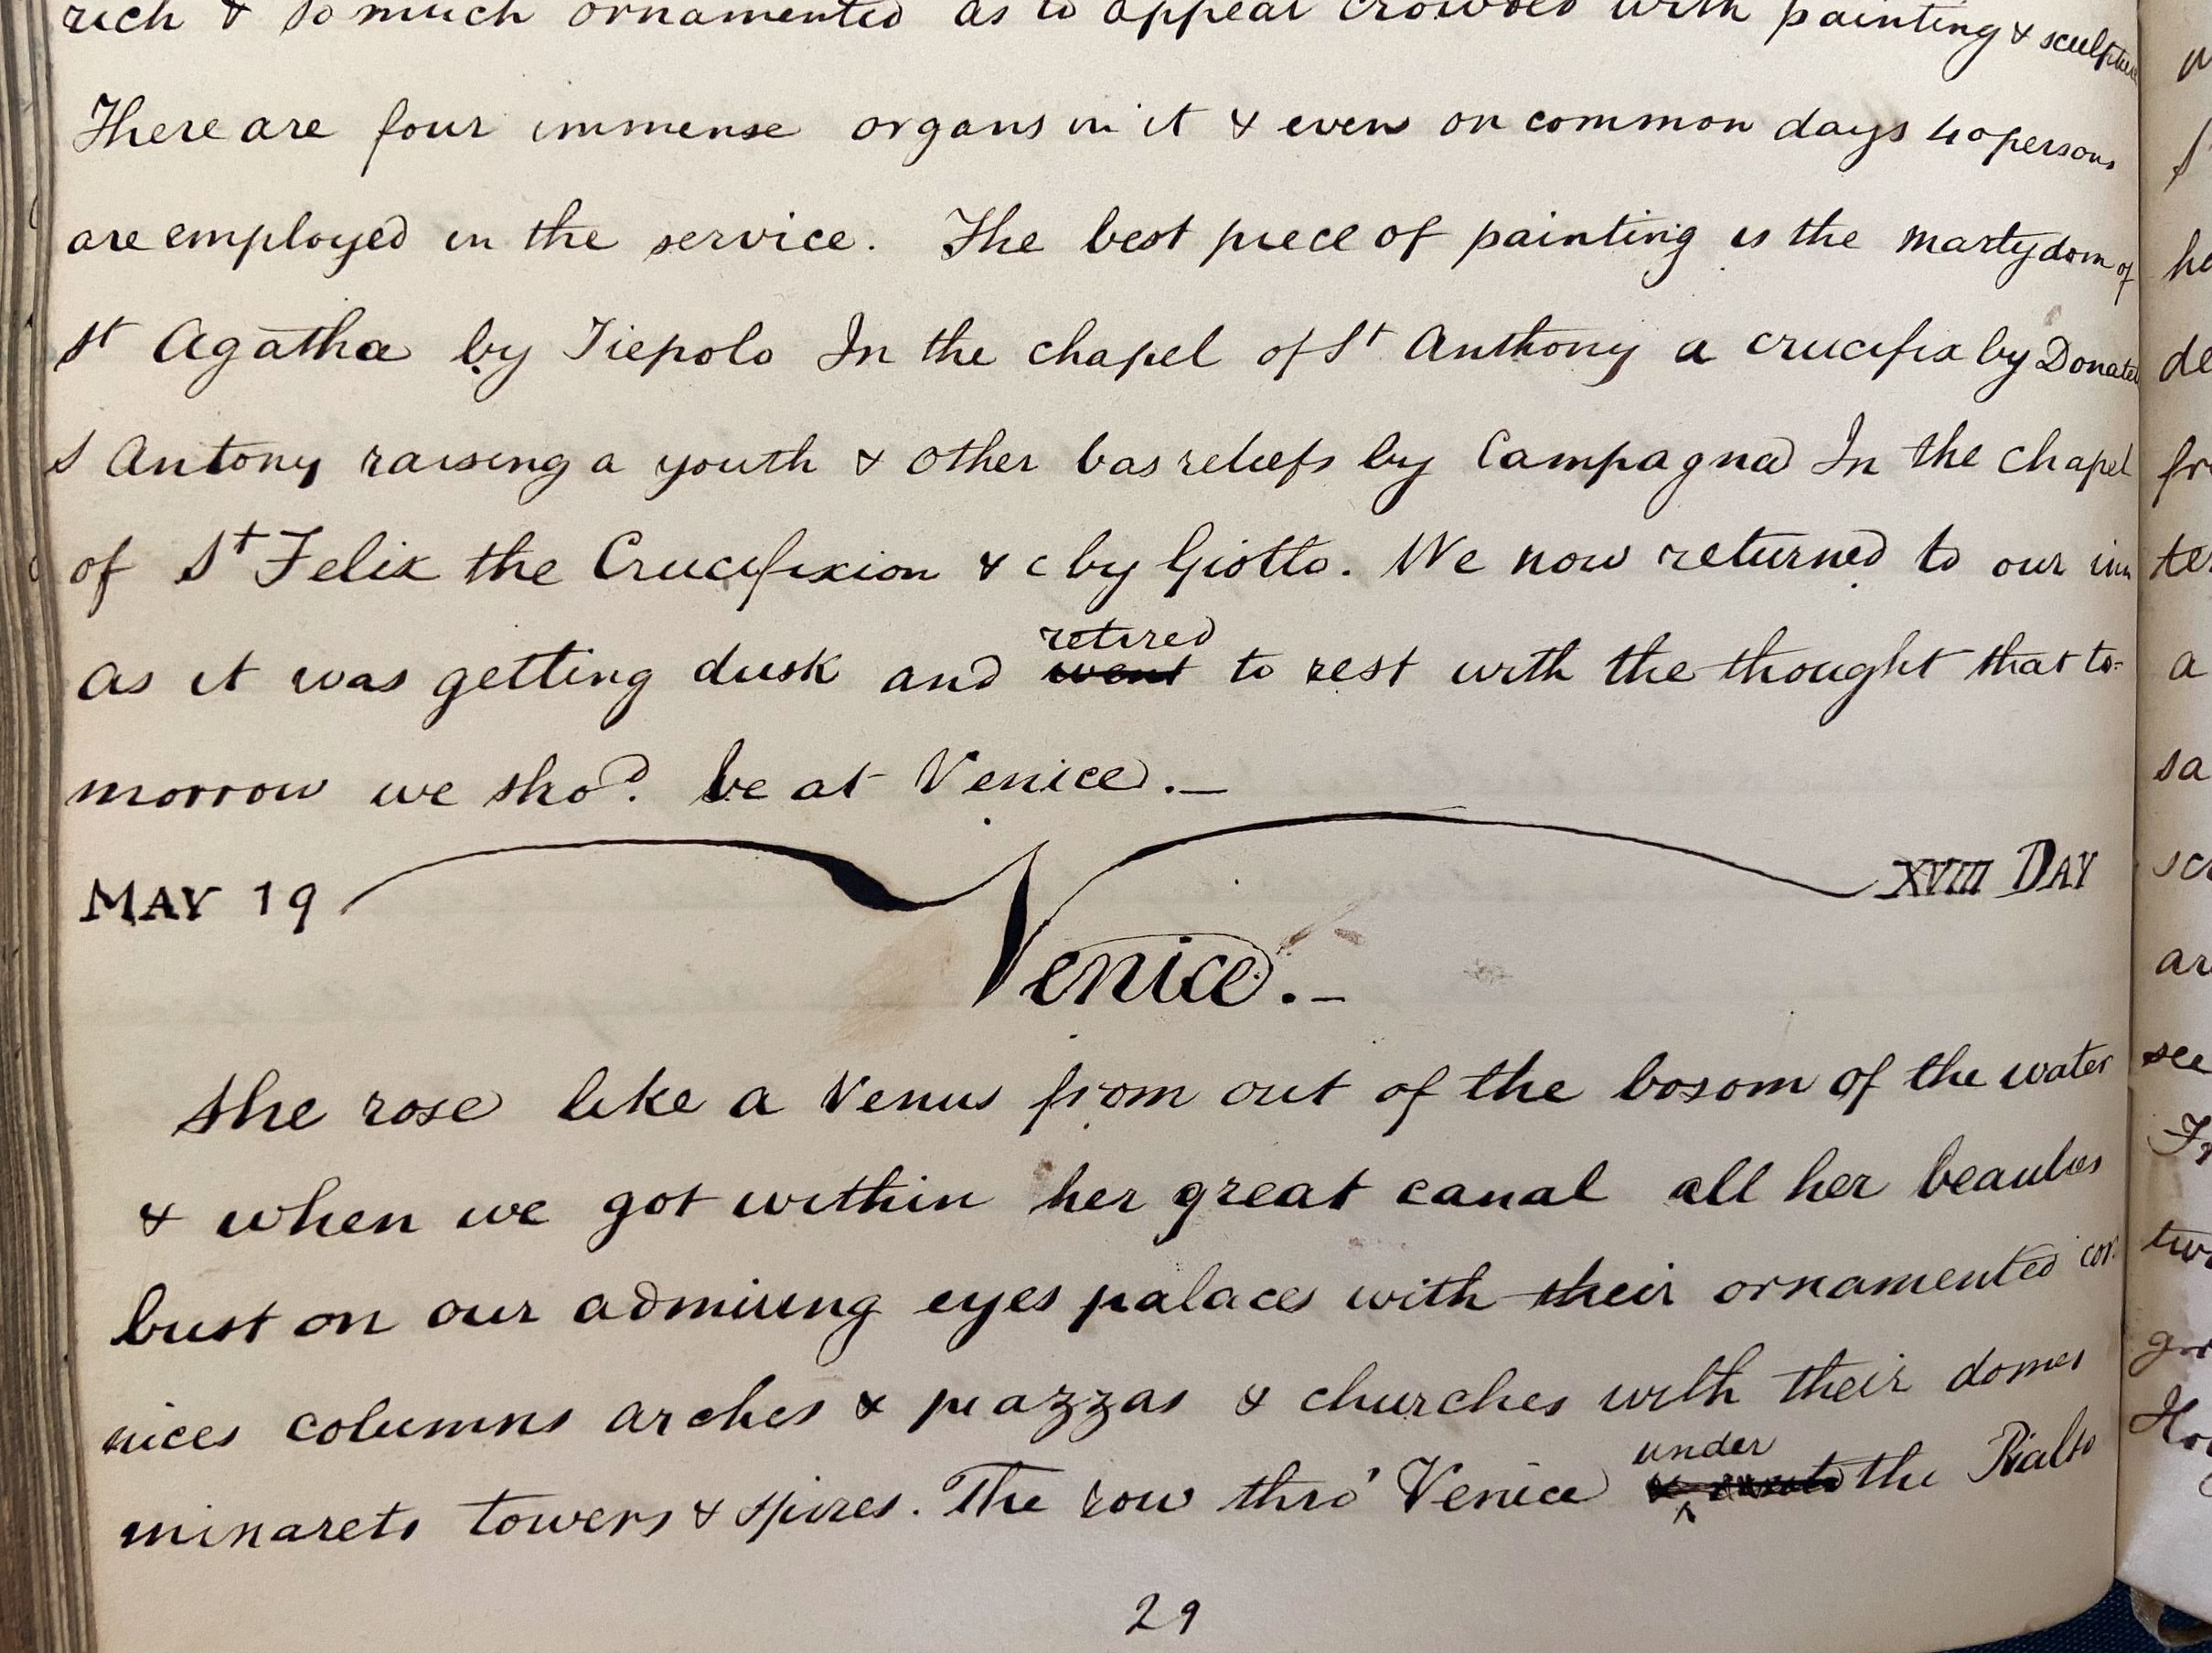 rich & so much ornamented as to appear crowded with painting & sculpture
There are four immense organs in it & even on common days 40 persons
are employed in the service. The best piece of painting is the martydom of
St Agatha by Tiepolo In the chapel of St Anthony a crucifix by Donatel
S Antony raising a youth & other bas reliefs by Campagna In the chapel
of St Felix the Crucifixion & c by Giotto. We now returned to our inn
as it was getting dusk and went retired to rest with the thought that to-
morrow we shod. be at Venice.—
MAY 19 XVIII DAY
Venice.—
She rose like a Venus from out of the bosom of the water
& when we got within her great canal all her beauties
bust on our admiring eyes palaces with their ornamented cor
nices columns arches & piazzas & churches with their domes
minarets towers & spires. The row thro' Venice under the Rialto
29